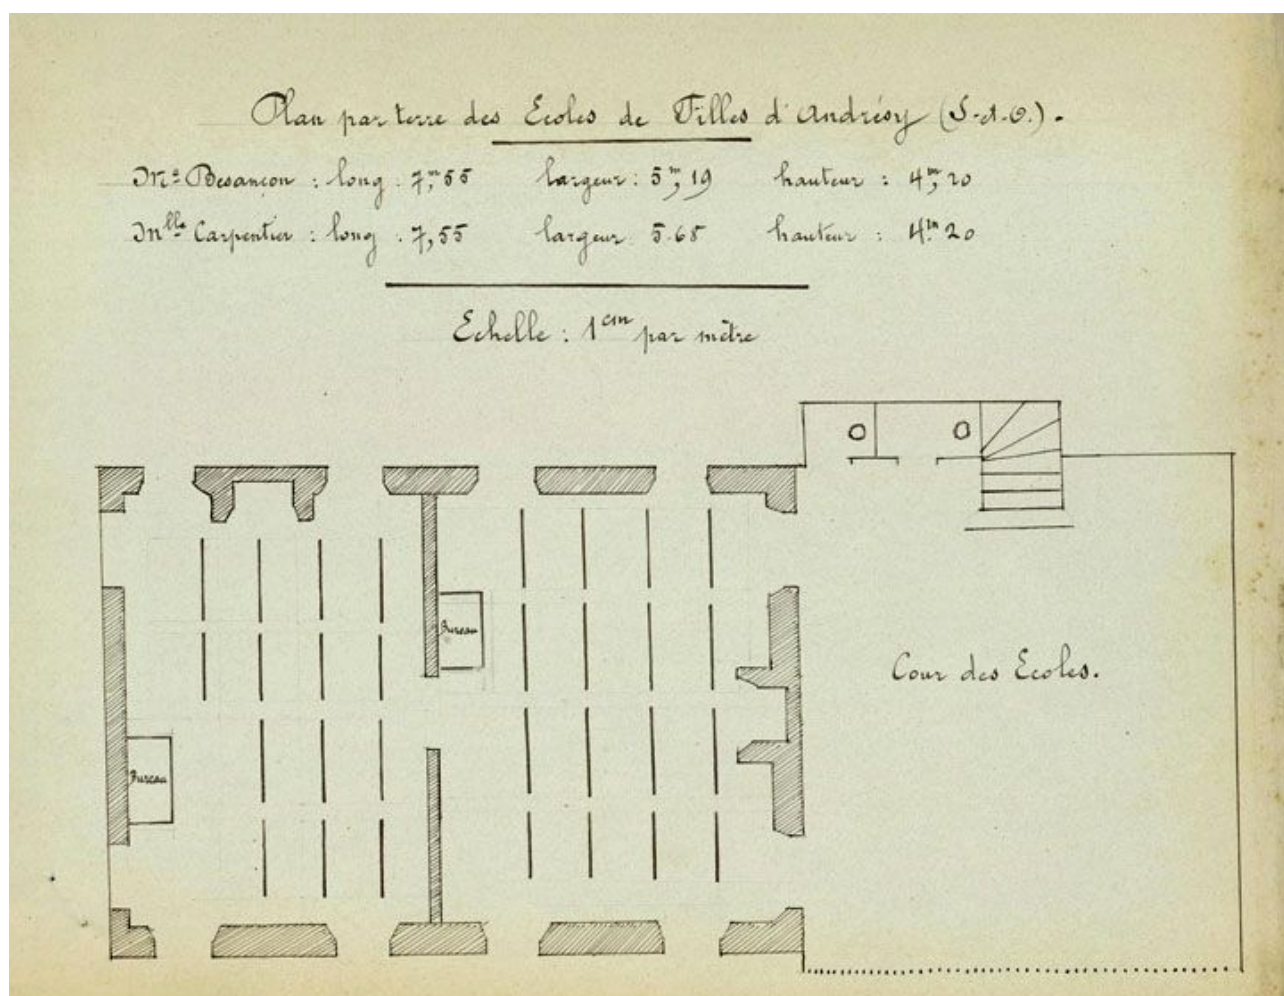 Plan par terre des Ecoles de Filles d'Andrésy (S-&-O.).
Me Besançon : long : 7,m55 largeur : 5m,19 hauteur : 4m,20
Mlle Carpentier : long : 7,55 largeur 5.68 hauteur : 4.m20
Echelle : 1cm par mètre
Bureau
Cour des Ecoles.
Bureau